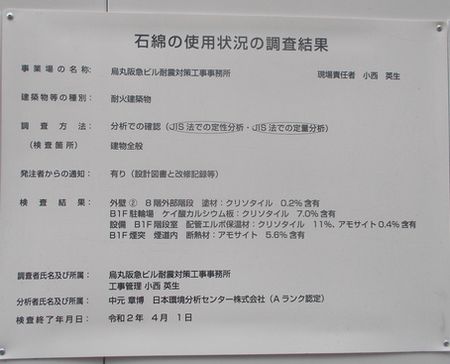 石綿の使用状況の調査結果
事業場の名称: 烏丸阪急ビル耐震対策工事事務所 現場責任者 小西 英生
建築物等の種別: 耐火建築物
調査方法: 分析での確認(JIS法での定性分析・JIS法での定量分析)
(検査箇所) 建物全般
発注者からの通知: 有り(設計図書と改修記録等)
検査結果: 外壁② 8階外部階段 塗材:クリソタイル 0.2%含有
B1F駐輪場 ケイ酸カルシウム板:クリソタイル 7.0%含有
設備 B1F階段室 配管エルボ保温材:クリソタイル 11%、アモサイト0.4%含有
B1F煙突 煙道内 断熱材:アモサイト 5.6%含有
調査者氏名及び所属: 烏丸阪急ビル耐震対策工事事務所
工事管理 小西 英生
分析者氏名及び所属: 中元 章博 日本環境分析センター株式会社(Aランク認定)
検査終了年月日: 令和2年 4月 1日